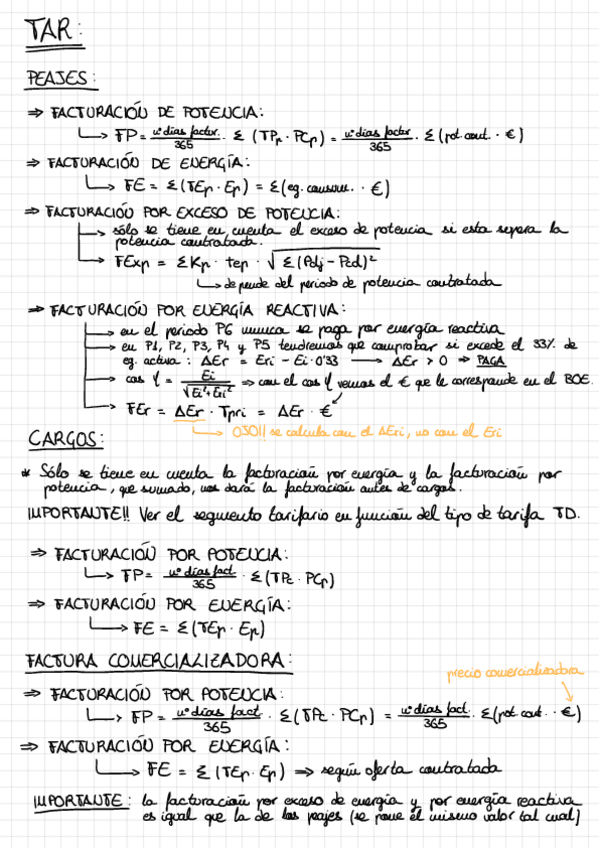 TAR:
PEAJES:
⇒ FACTURACIÓN DE POTENCIA:
↳ FP = nº días factur. / 365 · Σ (TPp · PCp) = nº días factur. / 365 · Σ (pot. cont. · €)
⇒ FACTURACIÓN DE ENERGÍA:
↳ FE = Σ (TEp · Ep) = Σ (eg. consum. · €)
⇒ FACTURACIÓN POR EXCESO DE POTENCIA:
→ sólo se tiene en cuenta el exceso de potencia si esta supera la
potencia contratada.
→ FExp = Σ Kp · tep · √Σ (Pdj - Pcd)²
↳ depende del periodo de potencia contratada
⇒ FACTURACIÓN POR ENERGÍA REACTIVA:
→ en el periodo P6 nunca se paga por energía reactiva
→ en P1, P2, P3, P4 y P5 tendremos que comprobar si excede el 33% de
eg. activa: ΔEr = Eri - Ei·0'33 → ΔEr > 0 ⇒ PAGA
→ cos φ = Ei / √Ei²+Eri² ⇒ con el cos φ vemos el € que le corresponde en el BOE.
→ FEr = ΔEr · Tpri = ΔEr · €
↳ OJO!! se calcula con el ΔEri, no con el Eri
CARGOS:
* Sólo se tiene en cuenta la facturación por energía y la facturación por
potencia, que sumado, nos dará la facturación antes de cargos.
IMPORTANTE!! Ver el segmento tarifario en función del tipo de tarifa TD.
⇒ FACTURACIÓN POR POTENCIA:
↳ FP = nº días fact. / 365 · Σ (TPc · PCp)
⇒ FACTURACIÓN POR ENERGÍA:
↳ FE = Σ (TEp · Ep)
FACTURA COMERCIALIZADORA:
precio comercializadora
⇒ FACTURACIÓN POR POTENCIA:
↳ FP = nº días fact. / 365 · Σ (TPc · PCp) = nº días fact. / 365 · Σ (pot. cont. · €)
⇒ FACTURACIÓN POR ENERGÍA:
↳ FE = Σ (TEp · Ep) ⇒ según oferta contratada
IMPORTANTE: la facturación por exceso de energía y por energía reactiva
es igual que la de los peajes (se pone el mismo valor tal cual)